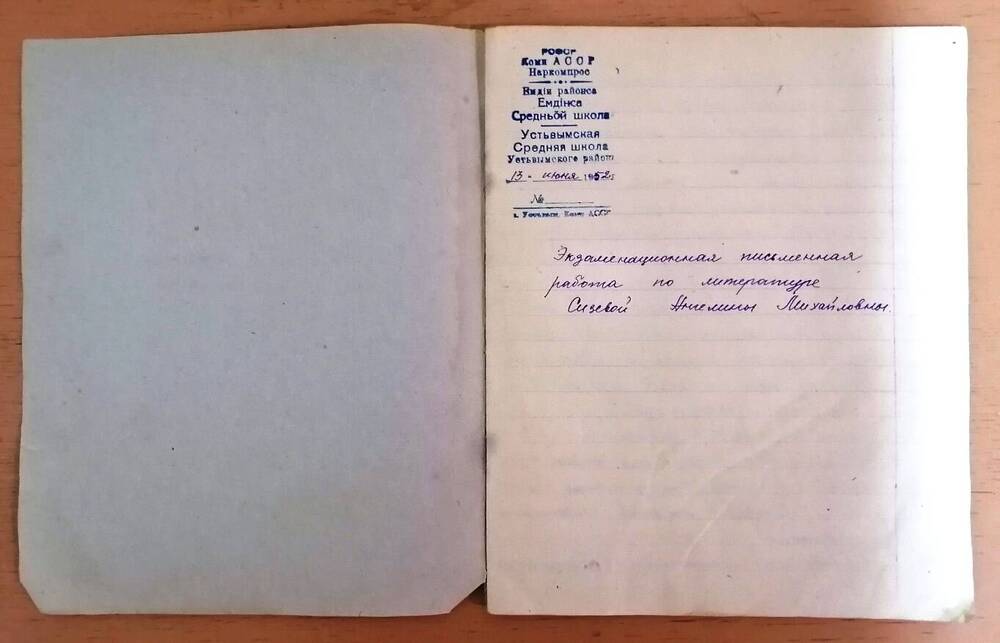 РСФСР
Коми АССР
Наркомпрос
Емдінса
Средньӧй школа
Устьвымская
Средняя школа
Устьвымского района
13 - июня 1952
№
Коми АССР
Экзаменационная письменная
работа по литературе
Сизевой Ангелины Михайловны.